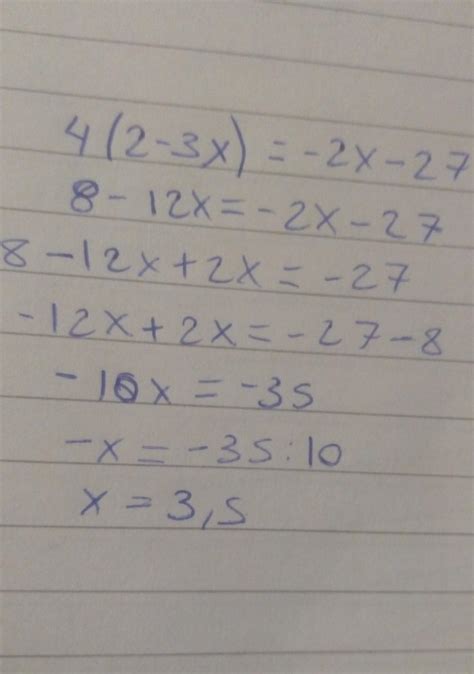 4(2-3x) = -2x-27
8-12x = -2x-27
8-12x+2x = -27
-12x+2x = -27-8
-10x = -35
-x = -35:10
x = 3,5